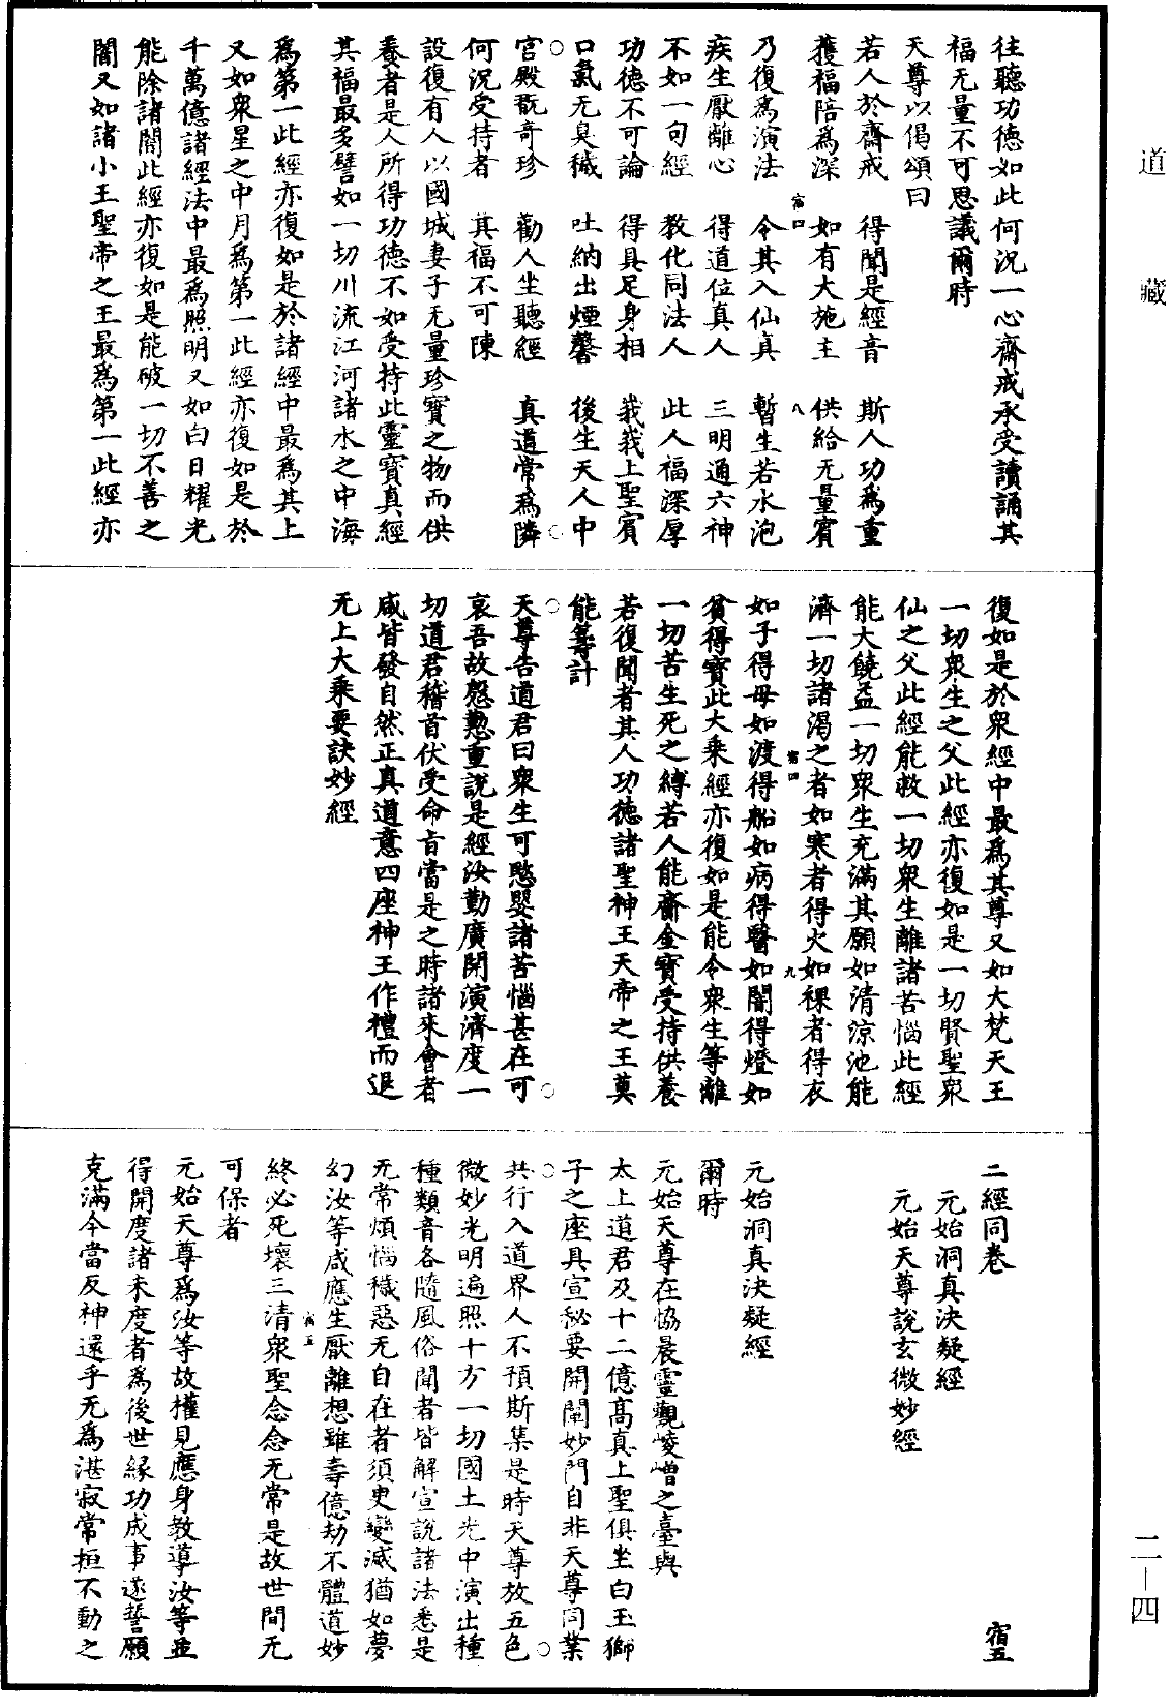 道藏
往聽功德如此何況一心齋戒承受讀誦其
福无量不可思議爾時
天尊以偈頌曰
若人於齋戒　得聞是經音　斯人功為重
獲福陪為深　如有大施主　供給无量賓
宿四　八
乃復為演法　令其入仙真　暫生若水泡
疾生厭離心　得道位真人　三明通六神
不如一句經　教化同法人　此人福深厚
功德不可論　得具足身相　峩峩上聖賓
口氣无臭穢　吐納出煙馨　後生天人中
宮殿翫奇珍　勸人坐聽經　真道常為隣
何況受持者　其福不可陳
設復有人以國城妻子无量珍寶之物而供
養者是人所得功德不如受持此靈寶真經
其福最多譬如一切川流江河諸水之中海
為第一此經亦復如是於諸經中最為其上
又如衆星之中月為第一此經亦復如是於
千萬億諸經法中最為照明又如白日耀光
能除諸闇此經亦復如是能破一切不善之
闇又如諸小王聖帝之王最為第一此經亦
復如是於衆經中最為其尊又如大梵天王
一切衆生之父此經亦復如是一切賢聖衆
仙之父此經能救一切衆生離諸苦惱此經
能大饒益一切衆生充滿其願如清涼池能
濟一切諸渴之者如寒者得火如裸者得衣
宿四　九
如子得母如渡得船如病得醫如闇得燈如
貧得寶此大乘經亦復如是能令衆生等離
一切苦生死之縛若人能齎金寶受持供養
若復聞者其人功德諸聖神王天帝之王莫
能等計
天尊告道君曰衆生可愍嬰諸苦惱甚在可
哀吾故慇懃重說是經汝勤廣開演濟度一
切道君稽首伏受命旨當是之時諸來會者
咸皆發自然正真道意四座神王作禮而退
无上大乘要訣妙經
二經同卷　宿五
元始洞真決疑經
元始天尊說玄微妙經
元始洞真決疑經
爾時
元始天尊在協晨靈觀崚嶒之臺與
太上道君及十二億高真上聖俱坐白玉獅
子之座具宣秘要開闡妙門自非天尊同業
共行入道界人不預斯集是時天尊放五色
微妙光明遍照十方一切國土光中演出種
種類音各隨風俗聞者皆解宣說諸法悉是
无常煩惱穢惡无自在者須臾變滅猶如夢
幻汝等咸應生厭離想雖壽億劫不體道妙
宿五
終必死壞三清衆聖念念无常是故世間无
可保者
元始天尊為汝等故權見應身教導汝等並
得開度諸未度者為後世緣功成事遂誓願
克滿今當反神還乎无為湛寂常恒不動之
二—四